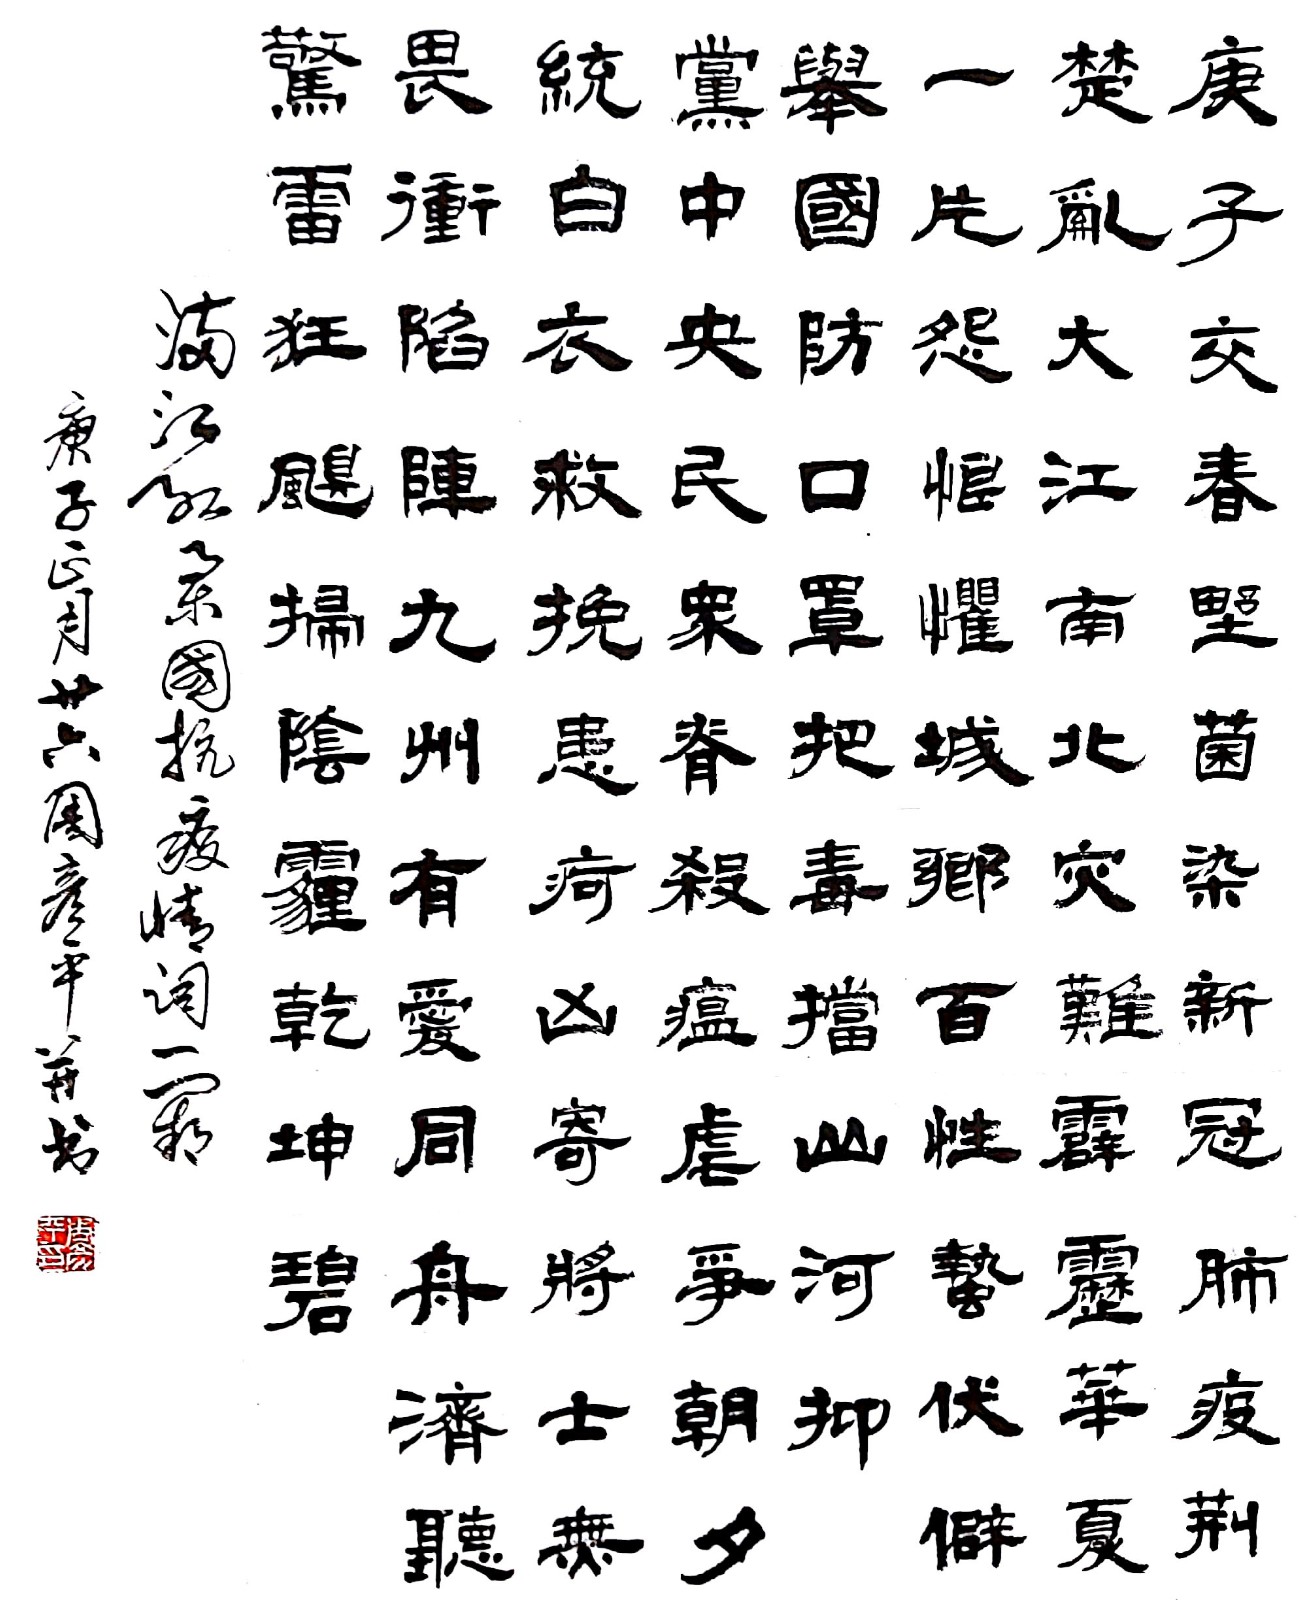 庚子交春墅菌染新冠肺疫荆
楚亂大江南北灾難霹靂華夏
一片怨悵懼城鄉百性蟄伏僻
舉國防口罩把毒擋山河抑
黨中央民眾脊殺瘟虐爭朝夕
統白衣救挽患疴凶寄將士無
畏衝陷陣九州有愛同舟濟聽
驚雷狂颶掃陰霾乾坤碧
满江红举國抗疫情词一闋
庚子正月廿六周彦平并书
周彦平印